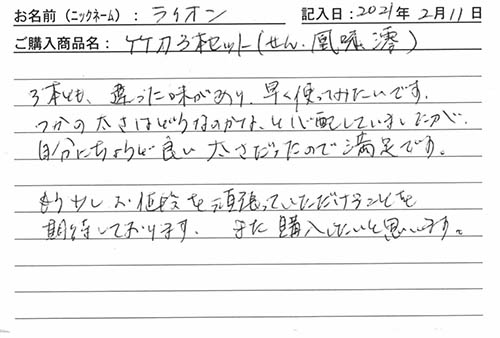 お名前（ニックネーム）：ライオン 記入日：2021年2月11日
ご購入商品名：竹刀3本セット（せん、風味、澪）
3本とも、違った味があり、早く使ってみたいです。
つかの太さはどうなのかな、と心配していましたが、
自分にちょうど良い太さだったので満足です。
もう少しお値段を頑張っていただけることを
期待しております。また購入したいと思います。